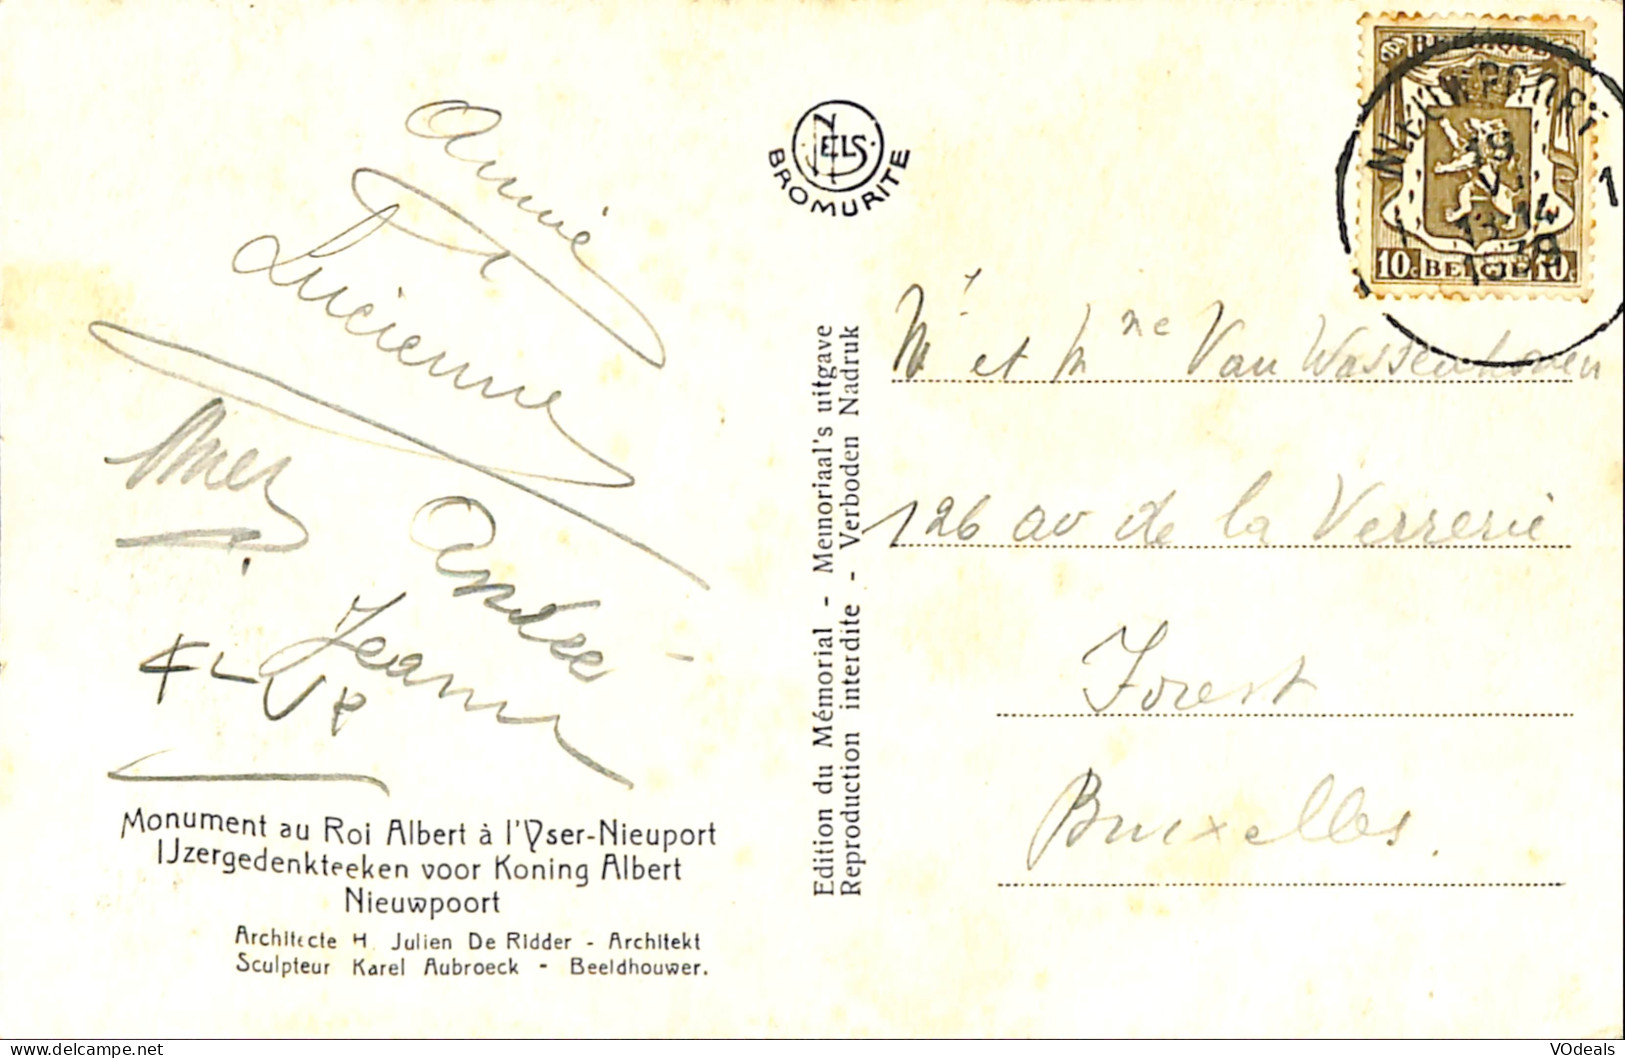 Annie
Lucienne
Andrée
Jeanne
Monument au Roi Albert à l'Yser-Nieuport
IJzergedenkteeken voor Koning Albert
Nieuwpoort
Architecte H. Julien De Ridder - Architekt
Sculpteur Karel Aubroeck - Beeldhouwer.
NELS
BROMURITE
Edition du Mémorial - Memoriaal's uitgave
Reproduction interdite - Verboden Nadruk
BELGIQUE
10c BELGIE 10c
NIEUWPOORT 1
19
VI
13-14
1939
Mr et Mme Van Wassenhoven
126 av de la Verrerie
Forest
Bruxelles.
VOdeals